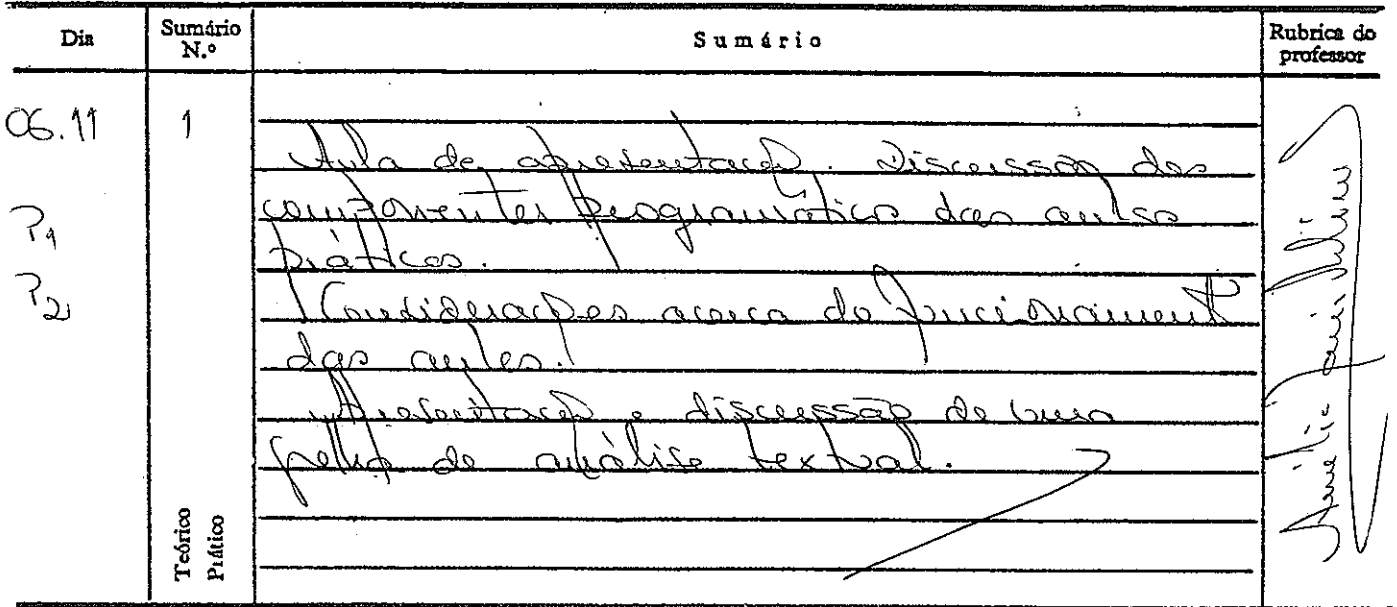 Dia
Sumário N.º
Sumário
Rubrica do professor
06.11
1
P1
P2
Aula de apresentação. Discussão dos
componentes programáticos das aulas
práticas.
Considerações acerca do funcionamento
das aulas.
Apresentação e discussão de uma
grelha de análise textual.
Teórico
Prático